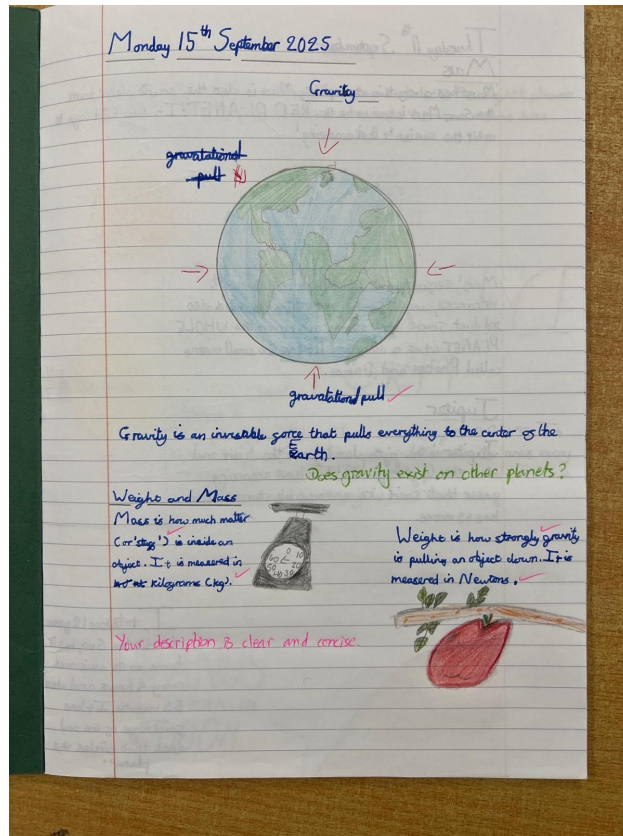 Monday 15th September 2025
Gravity
gravatational
pull
gravatational pull
Gravity is an invisable force that pulls everything to the center of the
Earth.
Does gravity exist on other planets?
Weight and Mass
Mass is how much matter
(or 'stuff') is inside an
object. It is measered in
kilograms (kg).
0 10 20 30 40 50 60
Weight is how strongly gravity
is pulling an object down. It is
measered in Newtons.
Your description is clear and concise.